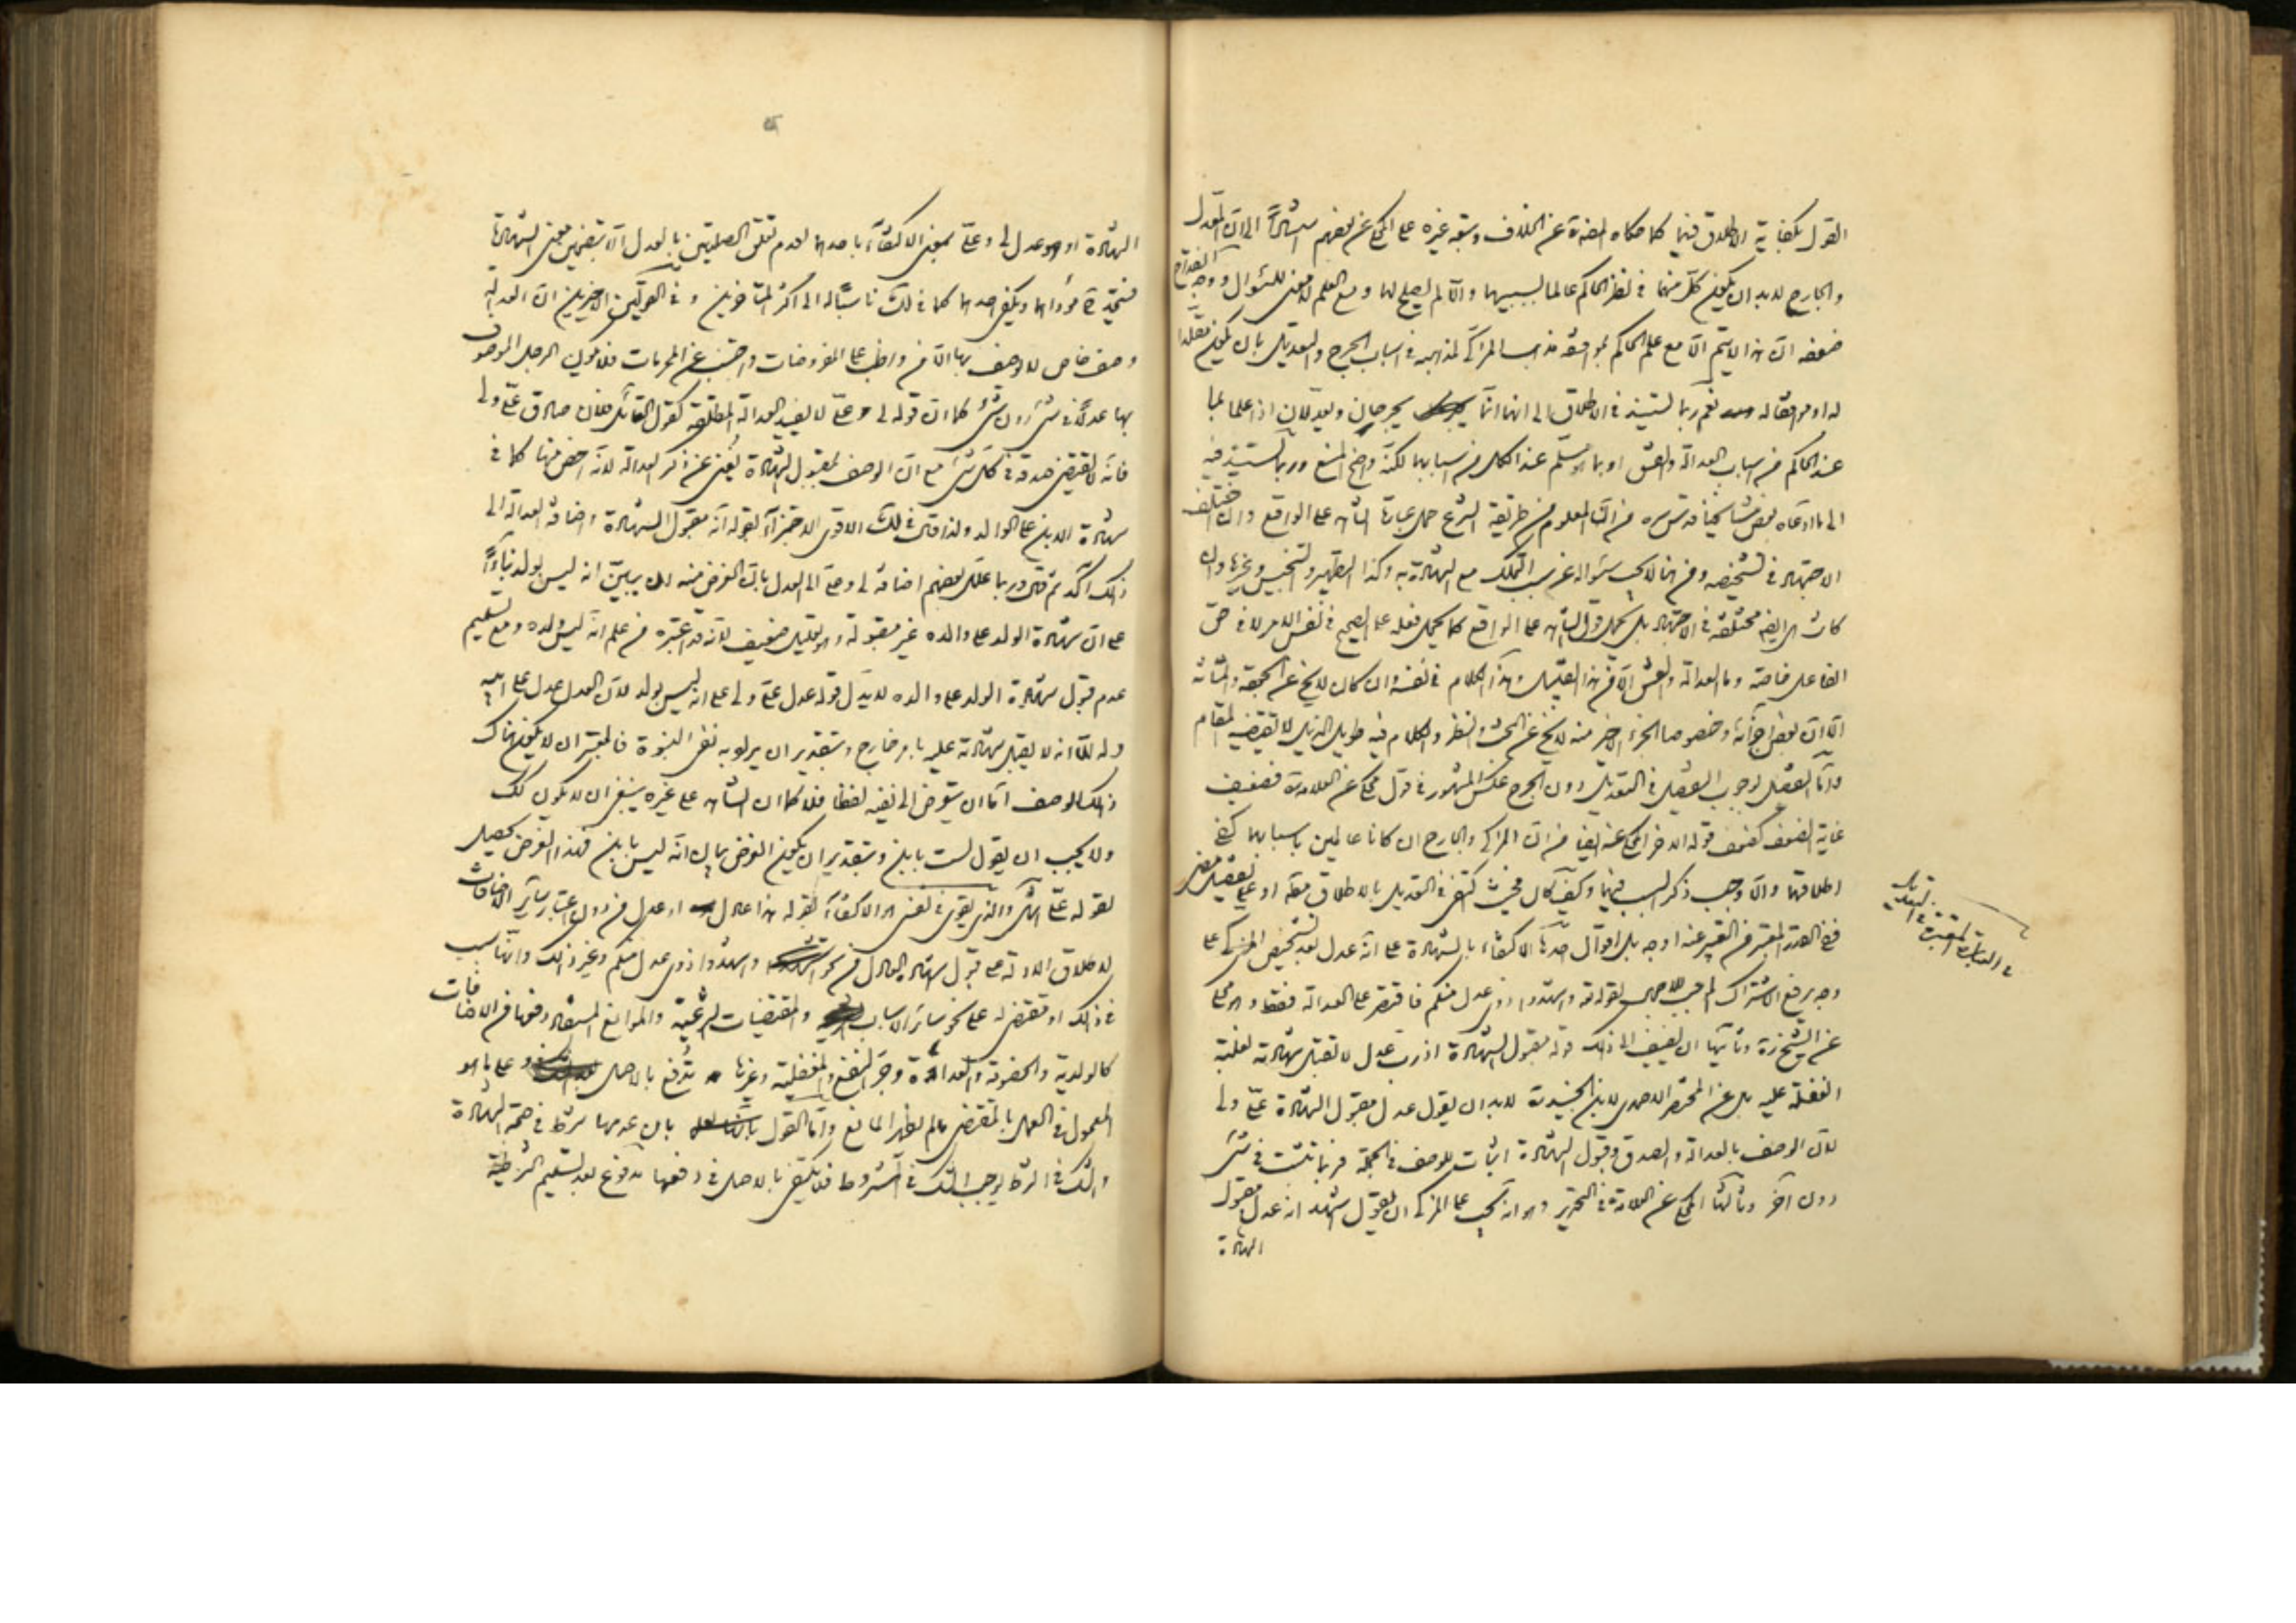 القول بكفاية الاطلاق فيهما كما حكاه عن الخلاف وتبعه غيره على المحكي عن بعضهم استنادا الى ان المعدل
والجارح لا بد ان يكون كل منهما في نظر الحاكم عالما بسببهما والا لم يصلح لهما ومع العلم لا معنى للسؤال ووجه
ضعفه ان هذا لا يتم الا مع علم الحاكم بموافقة مذهب المزكى لمذهبه في اسباب الجرح والتعديل بان يكون مقلدا
له او موافقا له نعم ربما يستند في الاطلاق الى انهما انما يجرحان ويعدلان اذا علما بما
عند الحاكم من اسباب العدالة والفسق او بما هو مسلم عند الكل من اسبابهما لكنه واضح المنع وربما يستند فيه
الى ما ادعاه بعض مشايخنا قدس سره من ان المعلوم من طريقة الشرع حمل عبارة الشاهد على الواقع وان اختلف
الاجتهاد في تشخيصه ومن هنا لا يجب سؤاله عن سبب التملك مع الشهادة به وكذا التطهير والتنجيس وغيرها وان
كانت هي ايضا مختلفة في الاجتهاد بل يحمل قول الشاهد على الواقع كما يحمل فعله على الصحيح في نفس الامر لا في حق
الفاعل خاصة وما العدالة والفسق الا من هذا القبيل وهذا الكلام في نفسه وان كان لا يخ عن الجودة والمتانة
الا ان بعض اجزائه وخصوصا الجزء الاخير منه لا يخ عن البحث والنظر والكلام فيه طويل الذيل لا يقتضيه المقام
واما التفصيل بوجوب التفصيل في التعديل دون الجرح عكس المشهور في قول محكى عن العلامة فضعيف
غاية الضعف كضعف قوله الاخر المحكى عنه ايضا من ان المزكى والجارح ان كانا عالمين باسبابهما كفى
اطلاقهما والا وجب ذكر السبب فيهما وكيف كان فحيث اكتفى في التعديل بالاطلاق مطلقا او على تفصيل
ففي القدر المعتبر من التعبير عنه اوجه بل اقوال احدها الاكتفاء بالشهادة على انه عدل بعد تشخيص المزكى على
وجه يرفع الاشتراك لقوله تعالى واشهدوا ذوى عدل منكم فاقتصر على العدالة فقط وهو محكى
عن الشيخ وثانيها ان يضيف الى ذلك قوله مقبول الشهادة اذ رب عدل لا تقبل شهادته لغلبة
الغفلة عليه بل عن المختصر الاحمدى لابن الجنيد لا بد ان يقول عدل مقبول الشهادة على ولى
لان الوصف بالعدالة والصدق وقبول الشهادة اثبات للوصف في الجملة فربما تثبت في شئ
دون آخر وثالثها المحكى عن العلامة في التحرير وهو انه يجب على المزكى ان يقول اشهد انه عدل مقبول
الشهادة
في العبارة المعتبرة في التعديل
الشهادة او هو عدل لى وعلى بمعنى الاكتفاء باحدهما لعدم تعلق الصلتين بالعدل الا بتضمين معنى الشهادة
فيتحد مؤداهما ويكفى احدهما كما في لك ناسبا له الى اكثر المتأخرين وفي القولين الاخيرين ان العدالة
وصف خاص لا يوصف بها الا من واظب على المفروضات واجتنب عن المحرمات فلا يكون الرجل الموصوف
بها عدلا في شئ دون شئ كما ان قوله لى وعلى لا يفيد العدالة المطلقة كقول القائل فلان صادق على ولى
فانه لا يقتضى صدقه في كل شئ مع ان الوصف بقبول الشهادة يغنى عن ذكر العدالة لانه اخص منها كما في
شهادة الابن على الوالد ولذا قال في لك الاقوى الاجتزاء بقوله انه مقبول الشهادة واضافة العدالة الى
ذلك آكد ثم قال وربما علل بعضهم اضافة لى وعلى الى العدل بان الغرض منه ان يبين انه ليس بولد بناء
على ان شهادة الولد على والده غير مقبولة وهو تعليل ضعيف لانه قد اعتبره من علم انه ليس ولده ومع تسليم
عدم قبول شهادة الولد على والده لا يدل قوله عدل على ولى على انه ليس بولد لان العدل عدل على ابيه
وله الا انه لا يقبل شهادته عليه بامر خارج وبتقدير ان يراد به نفى البنوة فالمعتبر ان لا يكون هناك
ذلك الوصف اما ان يتعرض الى نفيه لفظا فلا كما ان الشاهد على غيره ينبغى ان لا يكون كك
ولا يجب ان يقول لست بابن وبتقدير ان يكون الغرض بيان انه ليس بابن فهذا الغرض يحصل
لقوله على والذى يقوى في نفسى هو الاكتفاء بقوله هذا عادل او عدل من دون اعتبار سائر الاضافات
لاطلاق الادلة على قبول شهادة العادل من نحو واشهدوا ذوى عدل منكم وغير ذلك وانها سبب
في ذلك او مقتض له على نحو سائر الاسباب والمقتضيات الشرعية والموانع المشكوك وقوعها من الاضافات
كالولدية والخصومة والعداوة وجر النفع والمغفلية وغيرها تدفع بالاصل وعلى ما هو
المعمول في العمل بالمقتضى ما لم يظهر المانع واما القول بان عدمها شرط في صحة الشهادة
والشك في الشرط يوجب الشك في المشروط فلا يكتفى بالاصل في دفعها مدفوع بعد تسليم الشرطية